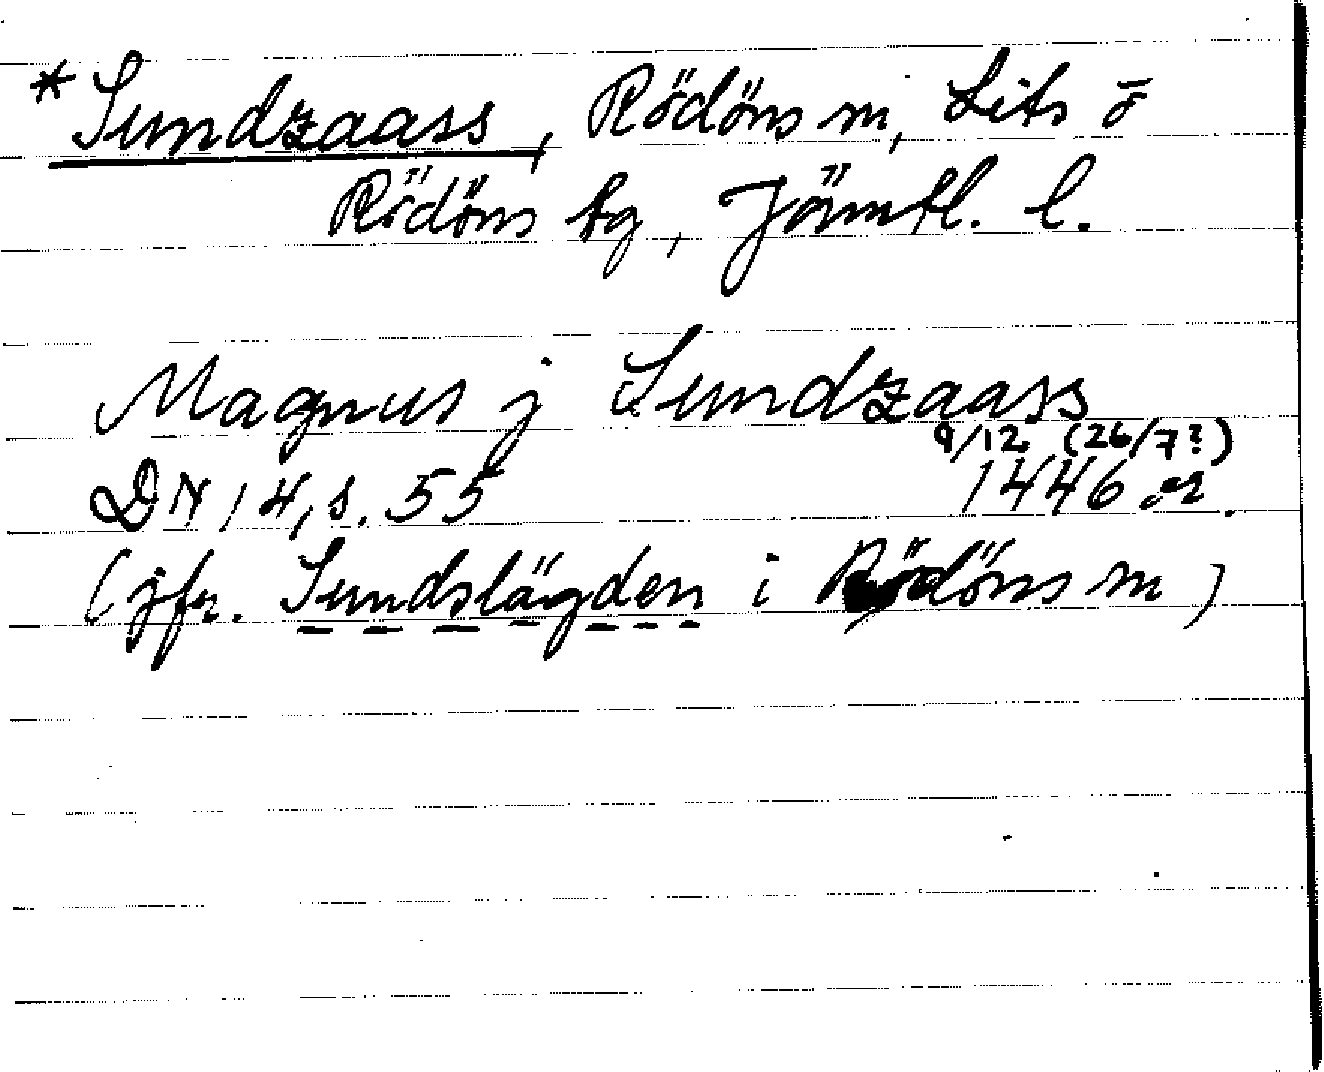 * Sundzaass, Rödöns sn, Lits o
Rödöns tg, Jämtl. l.
Magnus j Sundzaass
9/12 (26/7?)
DN 14, s. 55 1446 or.
(jfr. Sundslägden i Rödöns sn)